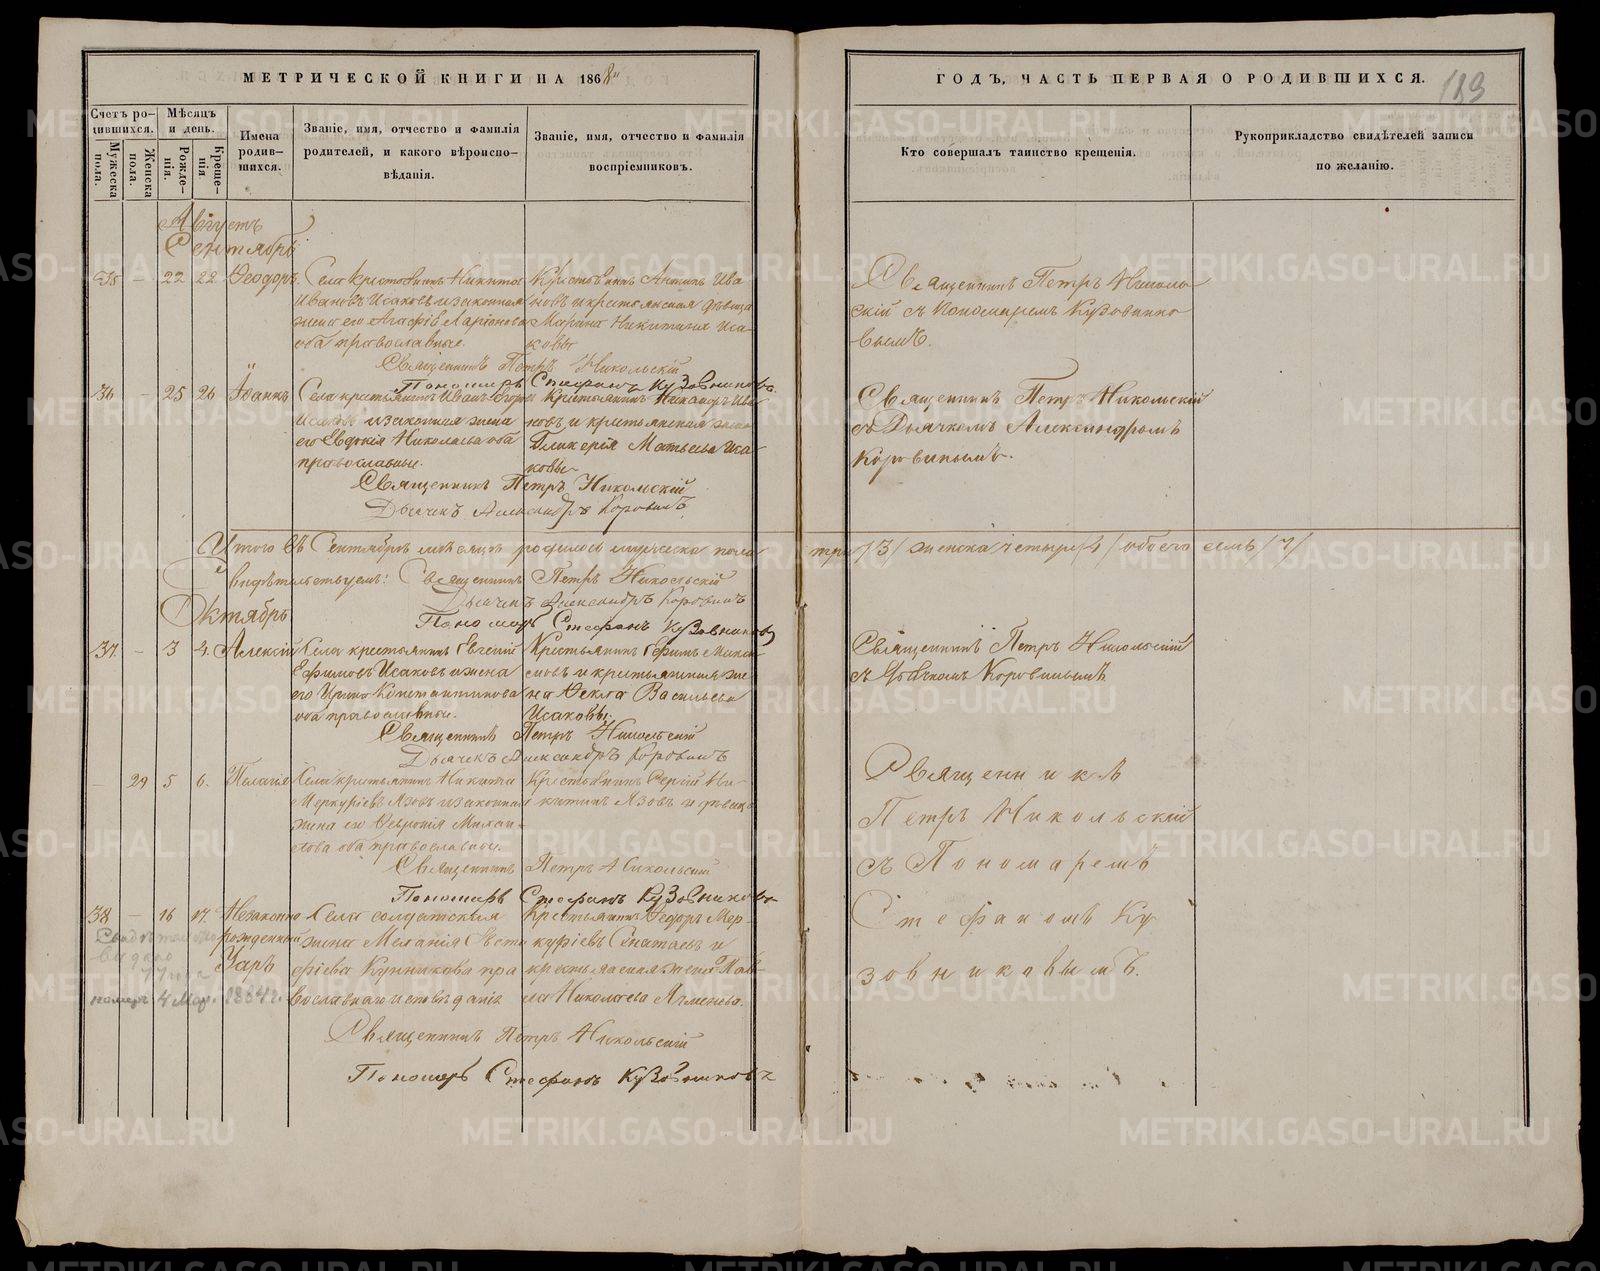 МЕТРИЧЕСКОЙ КНИГИ НА 1868
ГОДЪ, ЧАСТЬ ПЕРВАЯ О РОДИВШИХСЯ.
Счетъ родившихся.
Мужеска пола.
Женска пола.
Мѣсяцъ и день.
Рожденія.
Крещенія.
Имена родившихся.
Званіе, имя, отчество и фамилія
родителей, и какого вѣроисповѣданія.
Званіе, имя, отчество и фамилія
воспріемниковъ.
Кто совершалъ таинство крещенія.
Рукоприкладство свидѣтелей записи
по желанію.
Августъ
Сентябрь
35 – 22 22 Феодоръ.
Села крестьянинъ Никита
Ивановъ Исаковъ и законная
жена его Агафія Ларіонова
оба православные.
Крестьянинъ Антипъ Ива
новъ и крестьянская дѣвица
Марина Никитина Иса
ковы
Священникъ Петръ Никольскій
съ пономаремъ Кузовнико
вымъ.
Священникъ Петръ Никольскій
Пономарь Стефанъ Кузовниковъ
36 – 25 26 Іоаннъ
Села крестьянинъ Иванъ
Исаковъ и законная жена
его Евдокія Николаева оба
православные.
Крестьянинъ Никандръ Ива
новъ и крестьянская жена
Гликерія Матвеева Иса
ковы
Священникъ Петръ Никольскій
съ Дьячкомъ Александромъ
Коровинымъ.
Священникъ Петръ Никольскій
Дьячекъ Александръ Коровинъ
Итого въ Сентябрѣ мѣсяцѣ родилось мужеска пола три /3/ женска четыре /4/ обоего семь /7/
Священникъ Петръ Никольскій
Дьячекъ Александръ Коровинъ
Пономарь Стефанъ Кузовниковъ
Октябрь
37. – 3 4. Алексій
Села крестьянинъ Евгеній
Ефимовъ Исаковъ и жена
его Ирина Константинова
оба православные.
Крестьянинъ Ефимъ Макси
мовъ и крестьянская же
на Фекла Васильева
Исаковы.
Священникъ Петръ Никольскій
съ Дьячкомъ Коровинымъ
Священникъ Петръ Никольскій
Дьячекъ Александръ Коровинъ
– 29 5 6. Пелагія
Села крестьянинъ Никита
Меркуріевъ Язовъ и законная
жена его Феврония Михаи
лова оба православные.
Крестьянинъ Сергій Ни
китинъ Язовъ и дѣвица
Священникъ
Петръ Никольскій
съ Пономаремъ
Стефаномъ Ку
зовниковымъ.
Священникъ Петръ Никольскій
Пономарь Стефанъ Кузовниковъ
38 – 16 17. Незаконно
рожденный
Уаръ
Села солдатская
жена Меланія Евста
фіева Кунникова пра
вославнаго исповѣданія
Крестьянинъ Федоръ Мер
куріевъ и
крестьянская жена Пав
ла Николаева
4 Мар. 1884 г.
Священникъ Петръ Никольскій
Пономарь Стефанъ Кузовниковъ
METRIKI.GASO-URAL.RU